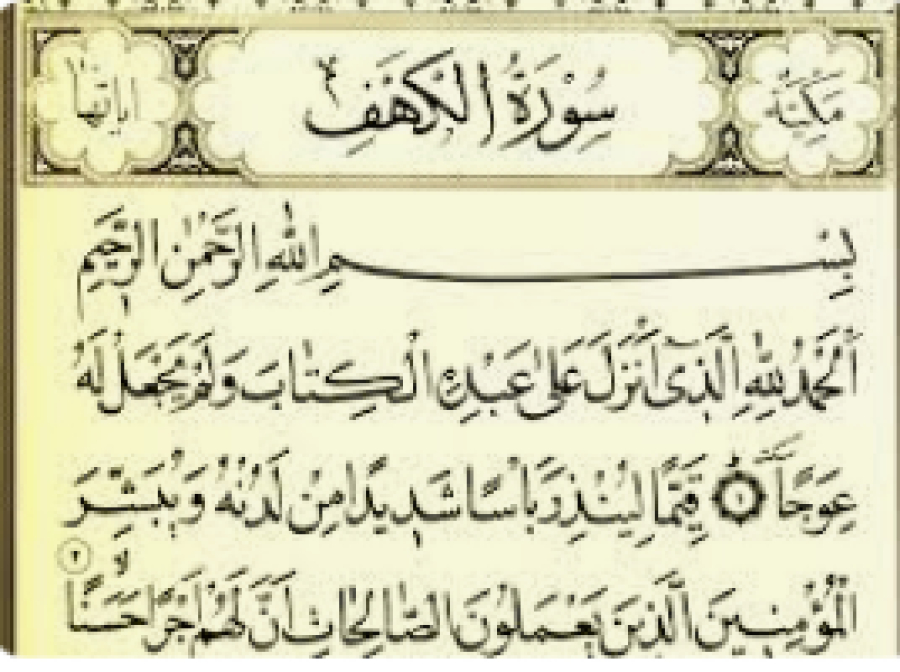 مَكِّيَّةٌ سُورَةُ الْكَهْفِ اياتها
بِسْمِ اللّٰهِ الرَّحْمٰنِ الرَّحِيمِ
اَلْحَمْدُ لِلّٰهِ الَّذِى اَنْزَلَ عَلٰى عَبْدِهِ الْكِتَابَ وَلَمْ يَجْعَلْ لَهُ
عِوَجًا ١ قَيِّمًا لِيُنْذِرَ بَاْسًا شَدِيدًا مِنْ لَدُنْهُ وَيُبَشِّرَ
الْمُؤْمِنِينَ الَّذِينَ يَعْمَلُونَ الصَّالِحَاتِ اَنَّ لَهُمْ اَجْرًا حَسَنًا ٢